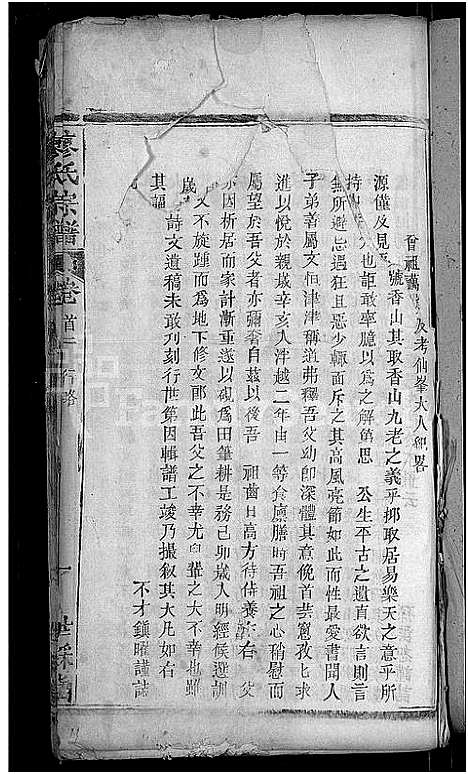 曾祖萬
及考仙峯大人節略
源僅及見吾
號香山其取香山九老之義乎抑取居易樂天之意乎所
持
也詎敢率臆以為之解第思 公生平古之遺直欲言則言
無所避忌遇狂且惡少輒面斥之其高風亮節如此而性最愛書聞人
子弟善屬文恒津津稱道弗釋吾父幼即深體其意俛首芸窻孜孜求
進以悅於親城辛亥入泮越二年由一等食廩膳時吾祖之心稍慰而
屬望於吾父者亦彌奢自茲以後吾 祖齒日高方待侍養
右 父
亦因析居而家計漸重遂以硯為田筆耕是務己卯歲入明經候選訓
歲
又不旋踵而為地下修文郎此吾父之不幸尤自輩之大不幸也雖
其
詩文遺稿未敢刋刻行世第因輯譜工竣乃撮叙其大凡如右
不才鎮曜謹誌
廖氏宗譜
卷首二
行略
十
世綵堂